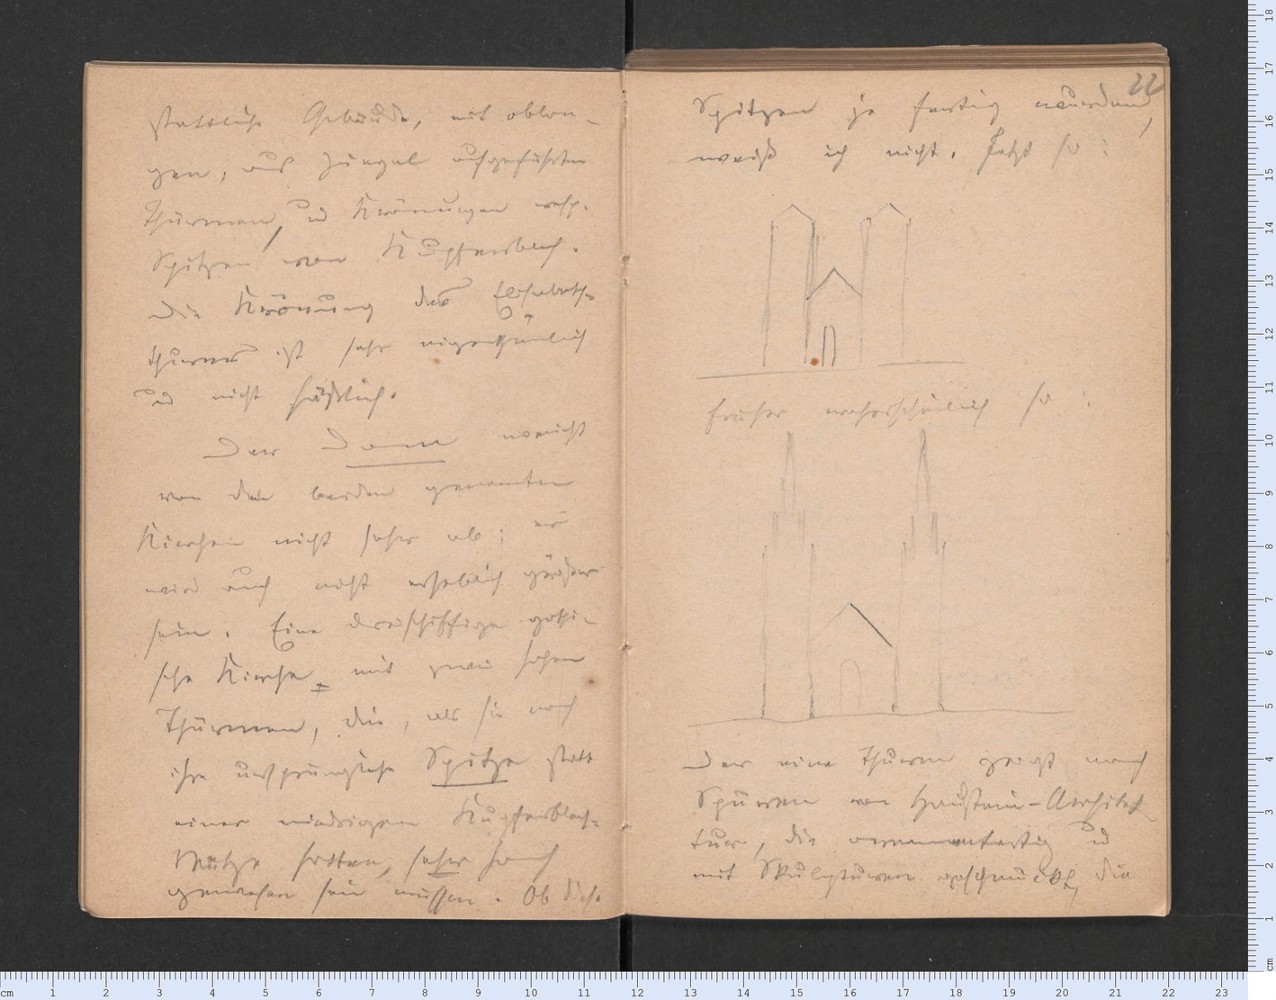 stattliche Gebäude, mit oblon-
gen, aus Ziegel aufgeführten
Thürmen, und Krönungen resp.
Spitzen von Kupferblech.
Die Krönung des Elisabeth-
thurms ist sehr eigenthümlich
und nicht häßlich.
Der Dom weicht
von den beiden genannten
Kirchen nicht sehr ab; er
wird auch nicht erheblich größer
sein. Eine dreischiffige gothi-
sche Kirche mit zwei hohen
Thürmen, die, als sie noch
ihre ursprüngliche Spitze statt
einer niedrigen Kupferblech-
Mütze hatten, sehr hoch
gewesen sein müssen. Ob diese
22
Spitzen je fertig wurden,
weiß ich nicht. Jetzt so:
früher wahrscheinlich so:
Der eine Thurm zeigt noch
Spuren von Haustein-Architek-
tur, die und
mit Skulpturen geschmückt, die